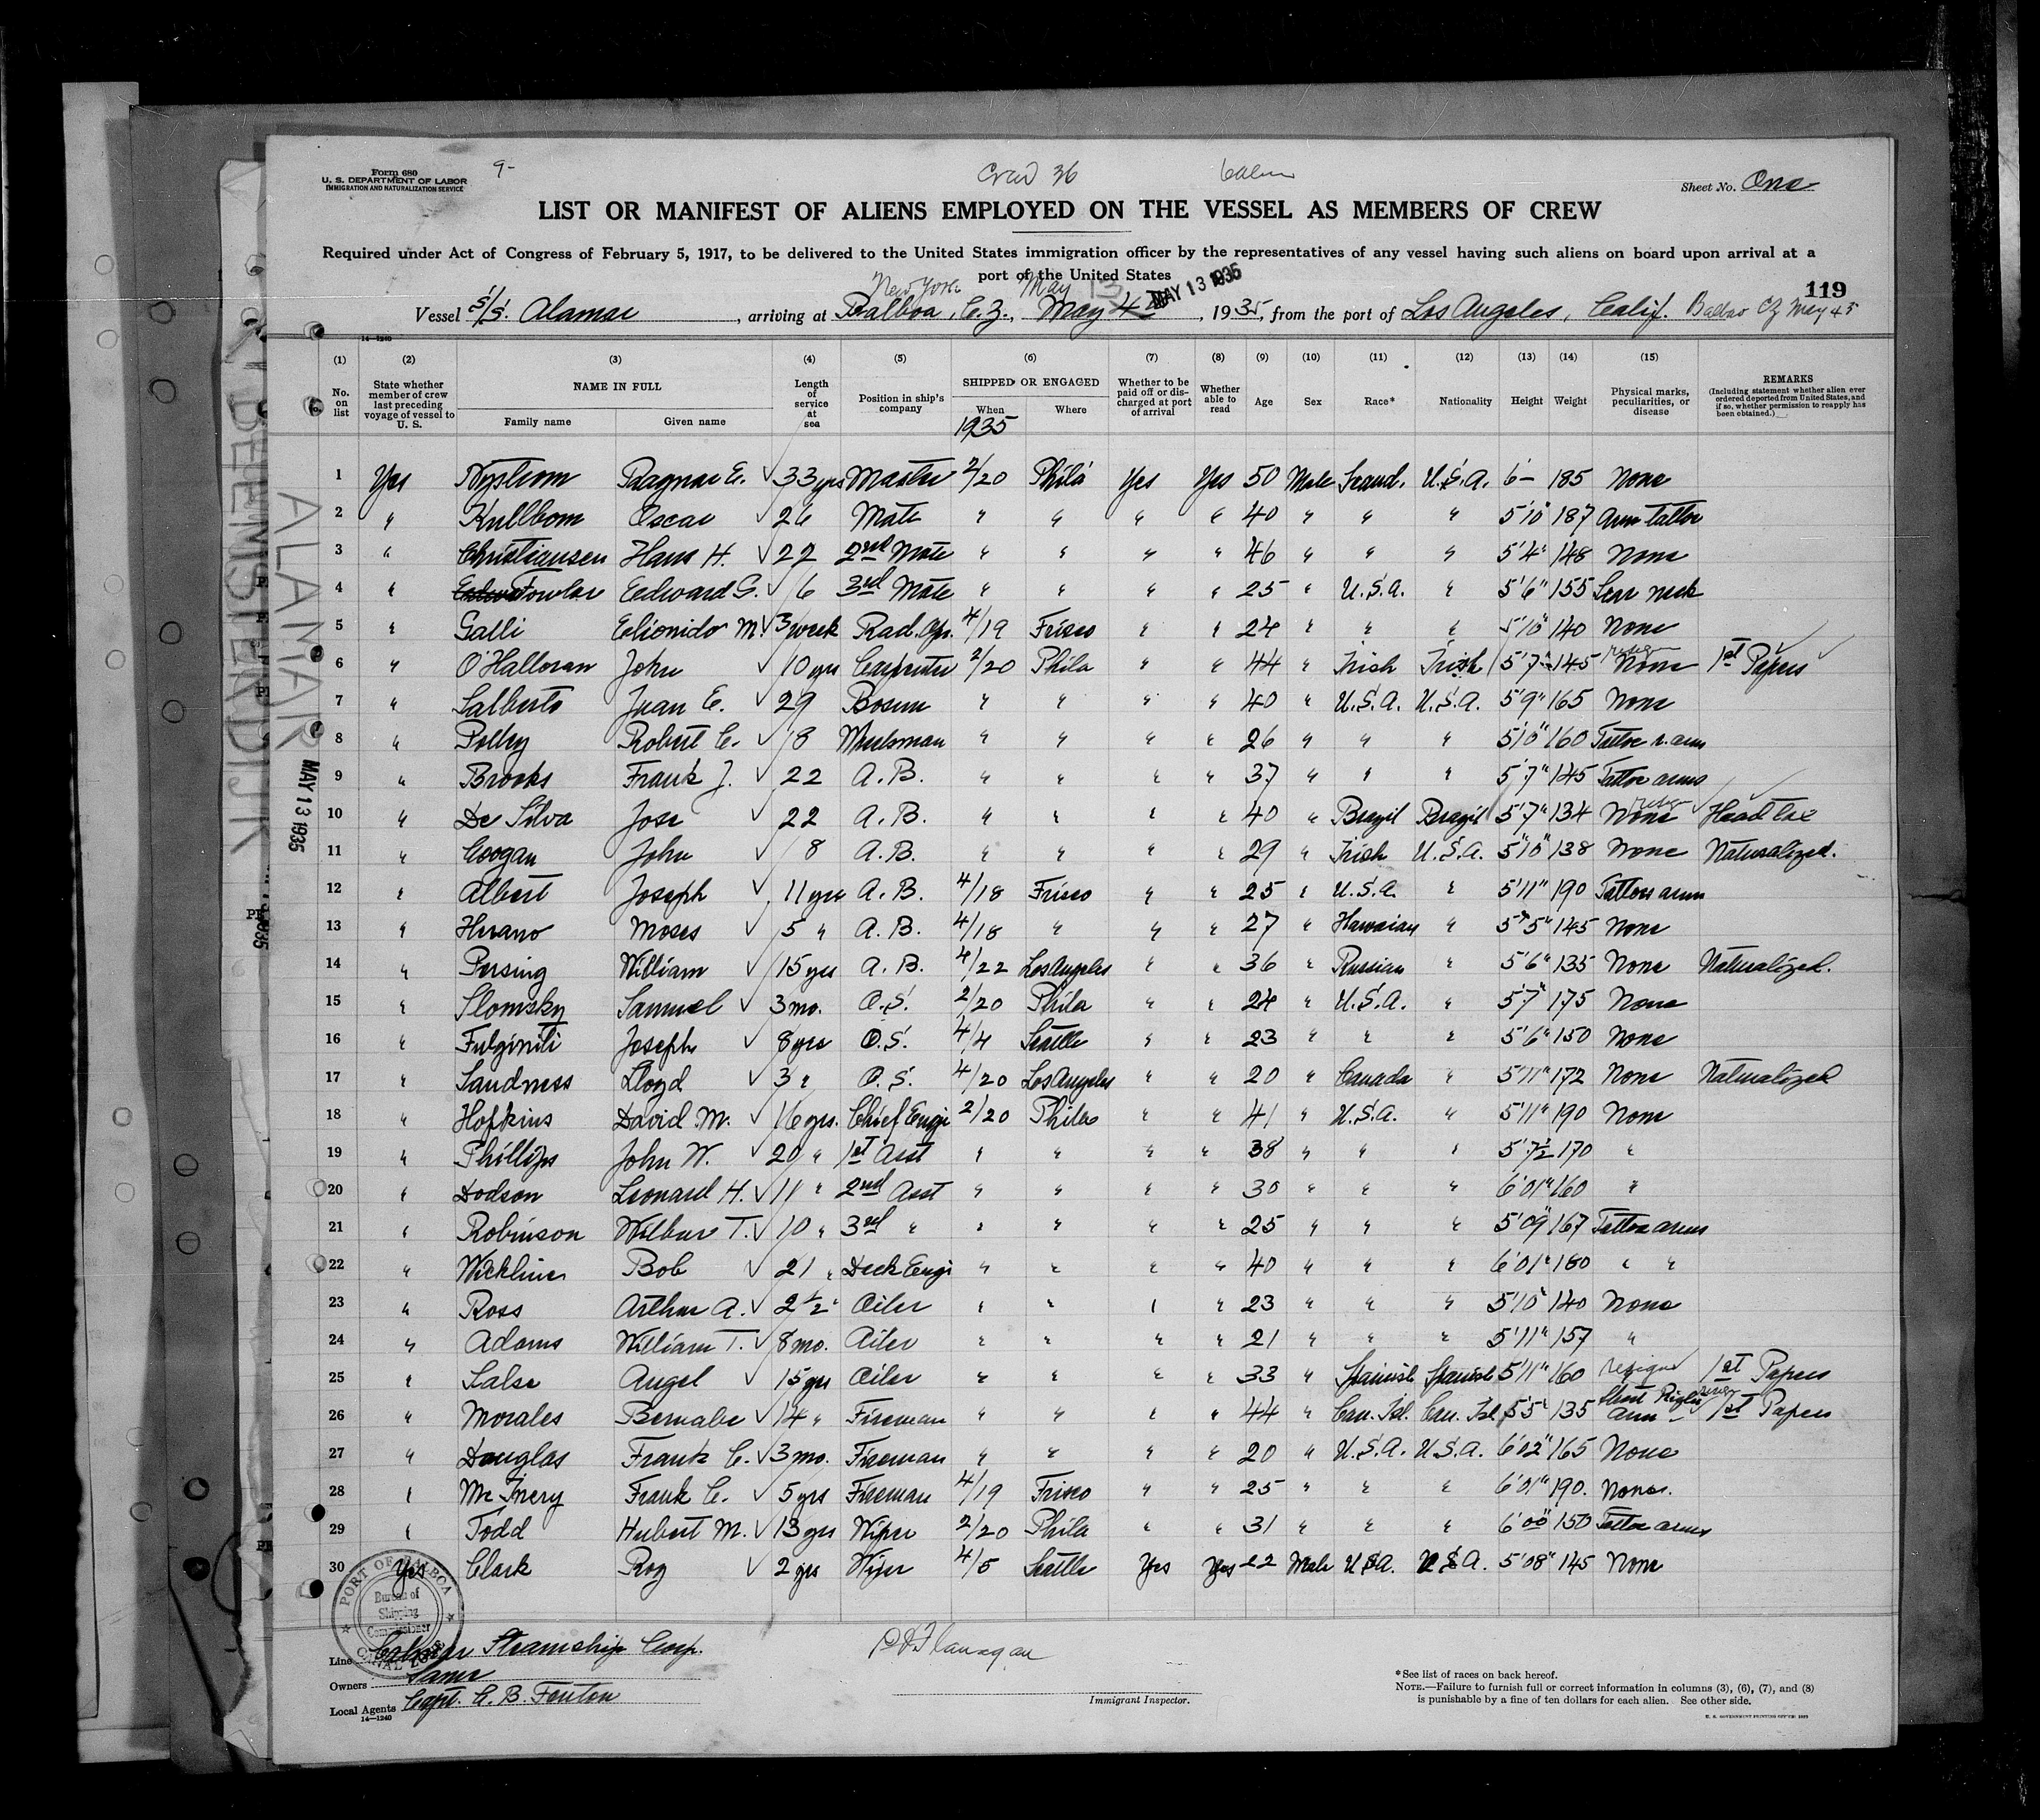 Form 680
U. S. DEPARTMENT OF LABOR
IMMIGRATION AND NATURALIZATION SERVICE
9-
Crew 36
Sheet No. One
LIST OR MANIFEST OF ALIENS EMPLOYED ON THE VESSEL AS MEMBERS OF CREW
Required under Act of Congress of February 5, 1917, to be delivered to the United States immigration officer by the representatives of any vessel having such aliens on board upon arrival at a
port of the United States
New York May 13 MAY 13 1935
119
Vessel S/S. Alamar, arriving at Balboa, C.Z., May 4, 1935, from the port of Los Angeles, Calif. Balboa CZ May 4 5
14-1240
(1) (2) (3) (4) (5) (6) (7) (8) (9) (10) (11) (12) (13) (14) (15)
No. on list State whether member of crew last preceding voyage of vessel to U. S. NAME IN FULL Family name Given name Length of service at sea Position in ship's company SHIPPED OR ENGAGED When Where Whether to be paid off or discharged at port of arrival Whether able to read Age Sex Race* Nationality Height Weight Physical marks, peculiarities, or disease REMARKS (Including statement whether alien ever ordered deported from United States, and if so, whether permission to reapply has been obtained.)
1935
1 Yes Nystrom Ragnar E. √ 33 yrs Master 2/20 Phila Yes Yes 50 Male Scand. U.S.A. 6- 185 None
2 " Kullbom Oscar √ 26 Mate " " " " 40 " " " 5'10" 187 Arm tattoo
3 " Christiansen Hans H. √ 22 2nd Mate " " " " 46 " " " 5'4" 148 None
4 " Fowler Edward G. √ 6 3rd Mate " " " " 25 " U.S.A. " 5'6" 155 Scar neck
5 " Galli Elionido M. √ 3 week Rad. Opr. 4/19 Frisco " " 24 " " " 5'10" 140 None
6 " O'Halloran John √ 10 yrs Carpenter 2/20 Phila " " 44 " Irish Irish 5'7" 145 None 1st Papers
7 " Salberto Juan E. √ 29 Bosun " " " " 40 " U.S.A. U.S.A. 5'9" 165 None
8 " Polley Robert C. √ 8 Wheelsman " " " " 26 " " " 5'10" 160 Tattoo r. arm
9 " Brooks Frank J. √ 22 A.B. " " " " 37 " " " 5'7" 145 Tattoo arms
10 " De Silva Jose √ 22 A.B. " " " " 40 " Brazil Brazil 5'7" 134 None Head tax
11 " Coogan John √ 8 A.B. " " " " 29 " Irish U.S.A. 5'10" 138 None Naturalized.
12 " Albert Joseph √ 11 yrs A.B. 4/18 Frisco " " 25 " U.S.A. " 5'11" 190 Tattoos arm
13 " Huano Moses √ 5 " A.B. 4/18 " " " 27 " Hawaian " 5'5" 145 None
14 " Persing William √ 15 yrs A.B. 4/22 Los Angeles " " 36 " Russian " 5'6" 135 None Naturalized.
15 " Slomsky Samuel √ 3 mo. O.S. 2/20 Phila " " 24 " U.S.A. " 5'7" 175 None
16 " Fulginiti Joseph √ 8 yrs O.S. 4/4 Seattle " " 23 " " " 5'6" 150 None
17 " Sandness Lloyd √ 3 " O.S. 4/20 Los Angeles " " 20 " Canada " 5'11" 172 None Naturalized
18 " Hopkins David M. √ 16 yrs. Chief Engi 2/20 Phila " " 41 " U.S.A. " 5'11" 190 None
19 " Phillips John W. √ 20 " 1st Asst " " " " 38 " " " 5'7½ 170 "
20 " Dodson Leonard H. √ 11 " 2nd Asst " " " " 30 " " " 6'01" 160 "
21 " Robinson Wilbur T. √ 10 " 3rd " " " " " 25 " " " 5'09" 167 Tattoo arms
22 " Wickline Bob √ 21 " Deck Engi " " " " 40 " " " 6'01" 180 " "
23 " Ross Arthur A. √ 2½ " Oiler " " " " 23 " " " 5'10" 140 None
24 " Adams William T. √ 8 mo. Oiler " " " " 21 " " " 5'11" 157 "
25 " Salse Angel √ 15 yrs Oiler " " " " 33 " Spanish Spanish 5'11" 160 " 1st Papers
26 " Morales Bernabe √ 14 " Fireman " " " " 44 " Can. Isl. Can. Isl. 5'5" 135 Short Right Arm - 1st Papers
27 " Douglas Frank C. √ 3 mo. Fireman " " " " 20 " U.S.A. U.S.A. 6'02" 165 None
28 " Mc Inery Frank C. √ 5 yrs Fireman 4/19 Frisco " " 25 " " " 6'01" 190. None.
29 " Todd Hubert M. √ 13 yrs Wiper 2/20 Phila " " 31 " " " 6'00" 150 Tattoo arms
30 Yes Clark Roy √ 2 yrs Wiper 4/5 Seattle Yes Yes 22 Male U.S.A. U.S.A. 5'08" 145 None
PORT OF BALBOA
Bureau of
Shipping
Commissioner
CANAL ZONE
Line Calmar Steamship Corp.
Owners Same
Local Agents Capt. C. B. Fenton
14-1240
Flanagan
Immigrant Inspector.
*See list of races on back hereof.
NOTE.—Failure to furnish full or correct information in columns (3), (6), (7), and (8)
is punishable by a fine of ten dollars for each alien. See other side.
ALAMAR
MAY 13 1935
BEEMSTERDIJK